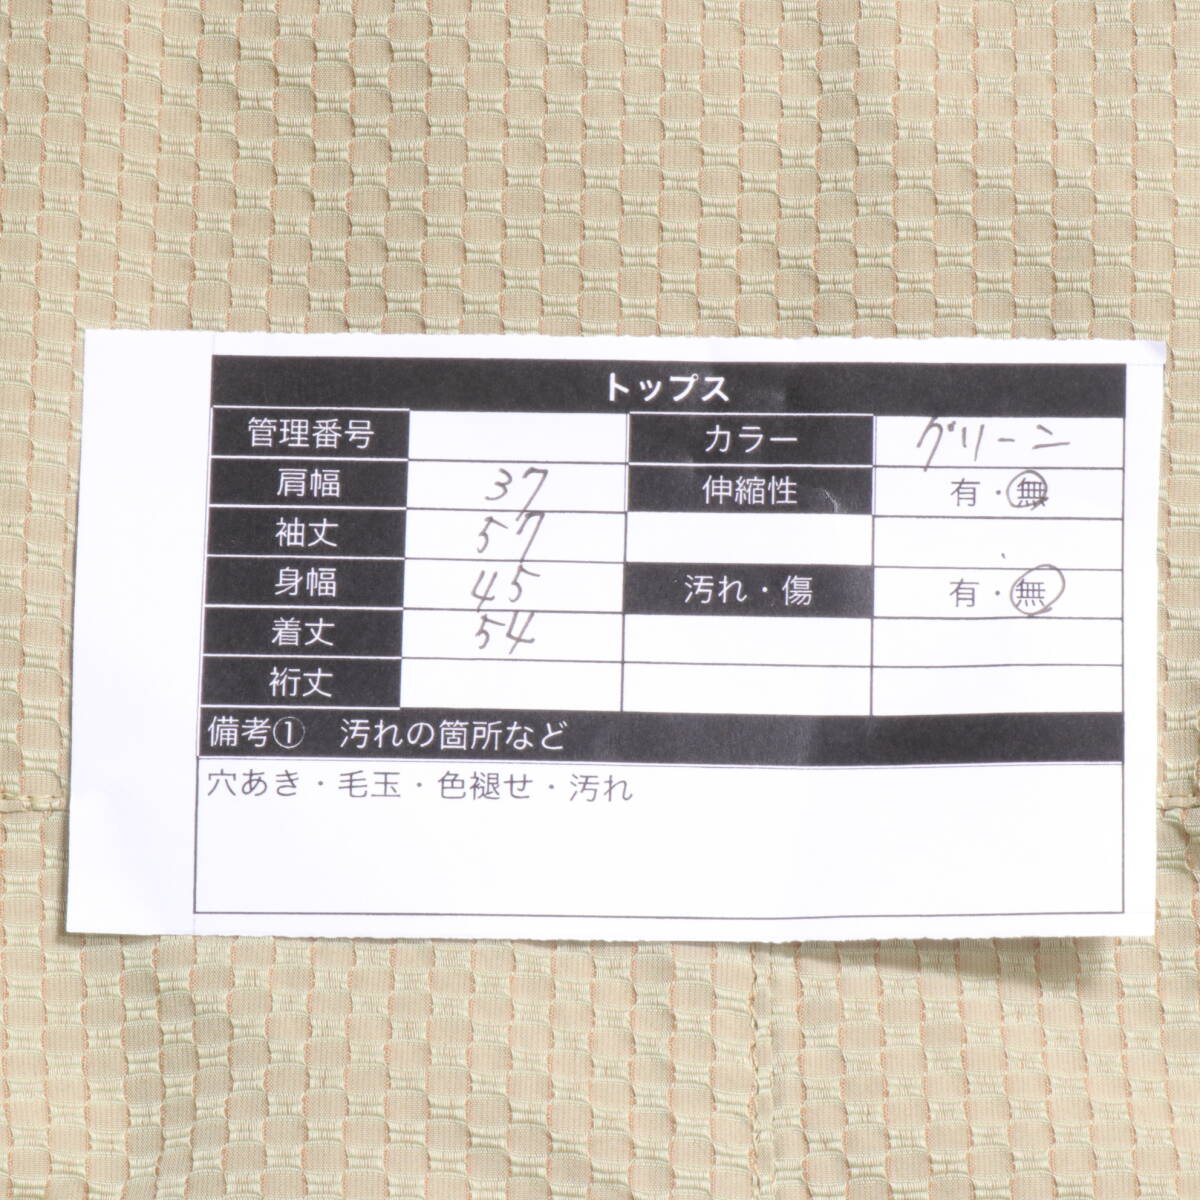 トップス
管理番号 カラー グリーン
肩幅 37 伸縮性 有・無
袖丈 57
身幅 45 汚れ・傷 有・無
着丈 54
裄丈
備考① 汚れの箇所など
穴あき・毛玉・色褪せ・汚れ